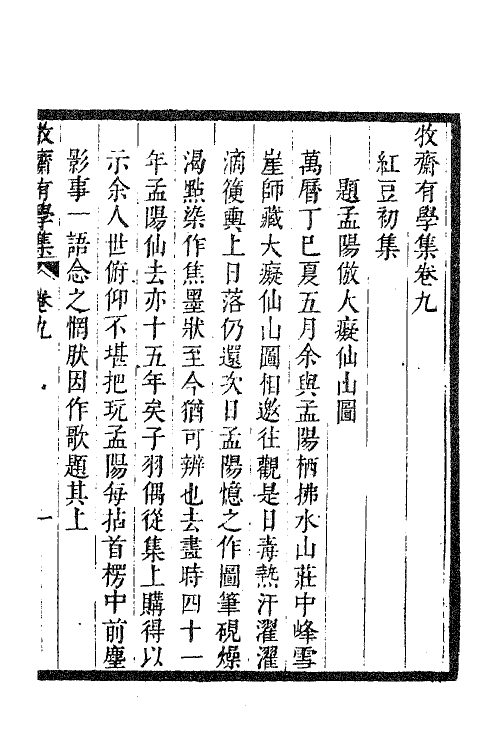 牧齋有學集卷九
紅豆初集
題孟陽倣大癡仙山圖
萬曆丁巳夏五月余與孟陽栖拂水山莊中峰雪
崖師藏大癡仙山圖相邀往觀是日毒熱汗濯濯
滴篗輿上日落仍還次日孟陽憶之作圖筆硯燥
渴點染作焦墨狀至今猶可辨也去畫時四十一
年孟陽仙去亦十五年矣子羽偶從集上購得以
示余人世俯仰不堪把玩孟陽每拈首楞中前塵
影事一語念之惘然因作歌題其上
牧齋有學集 卷九 一